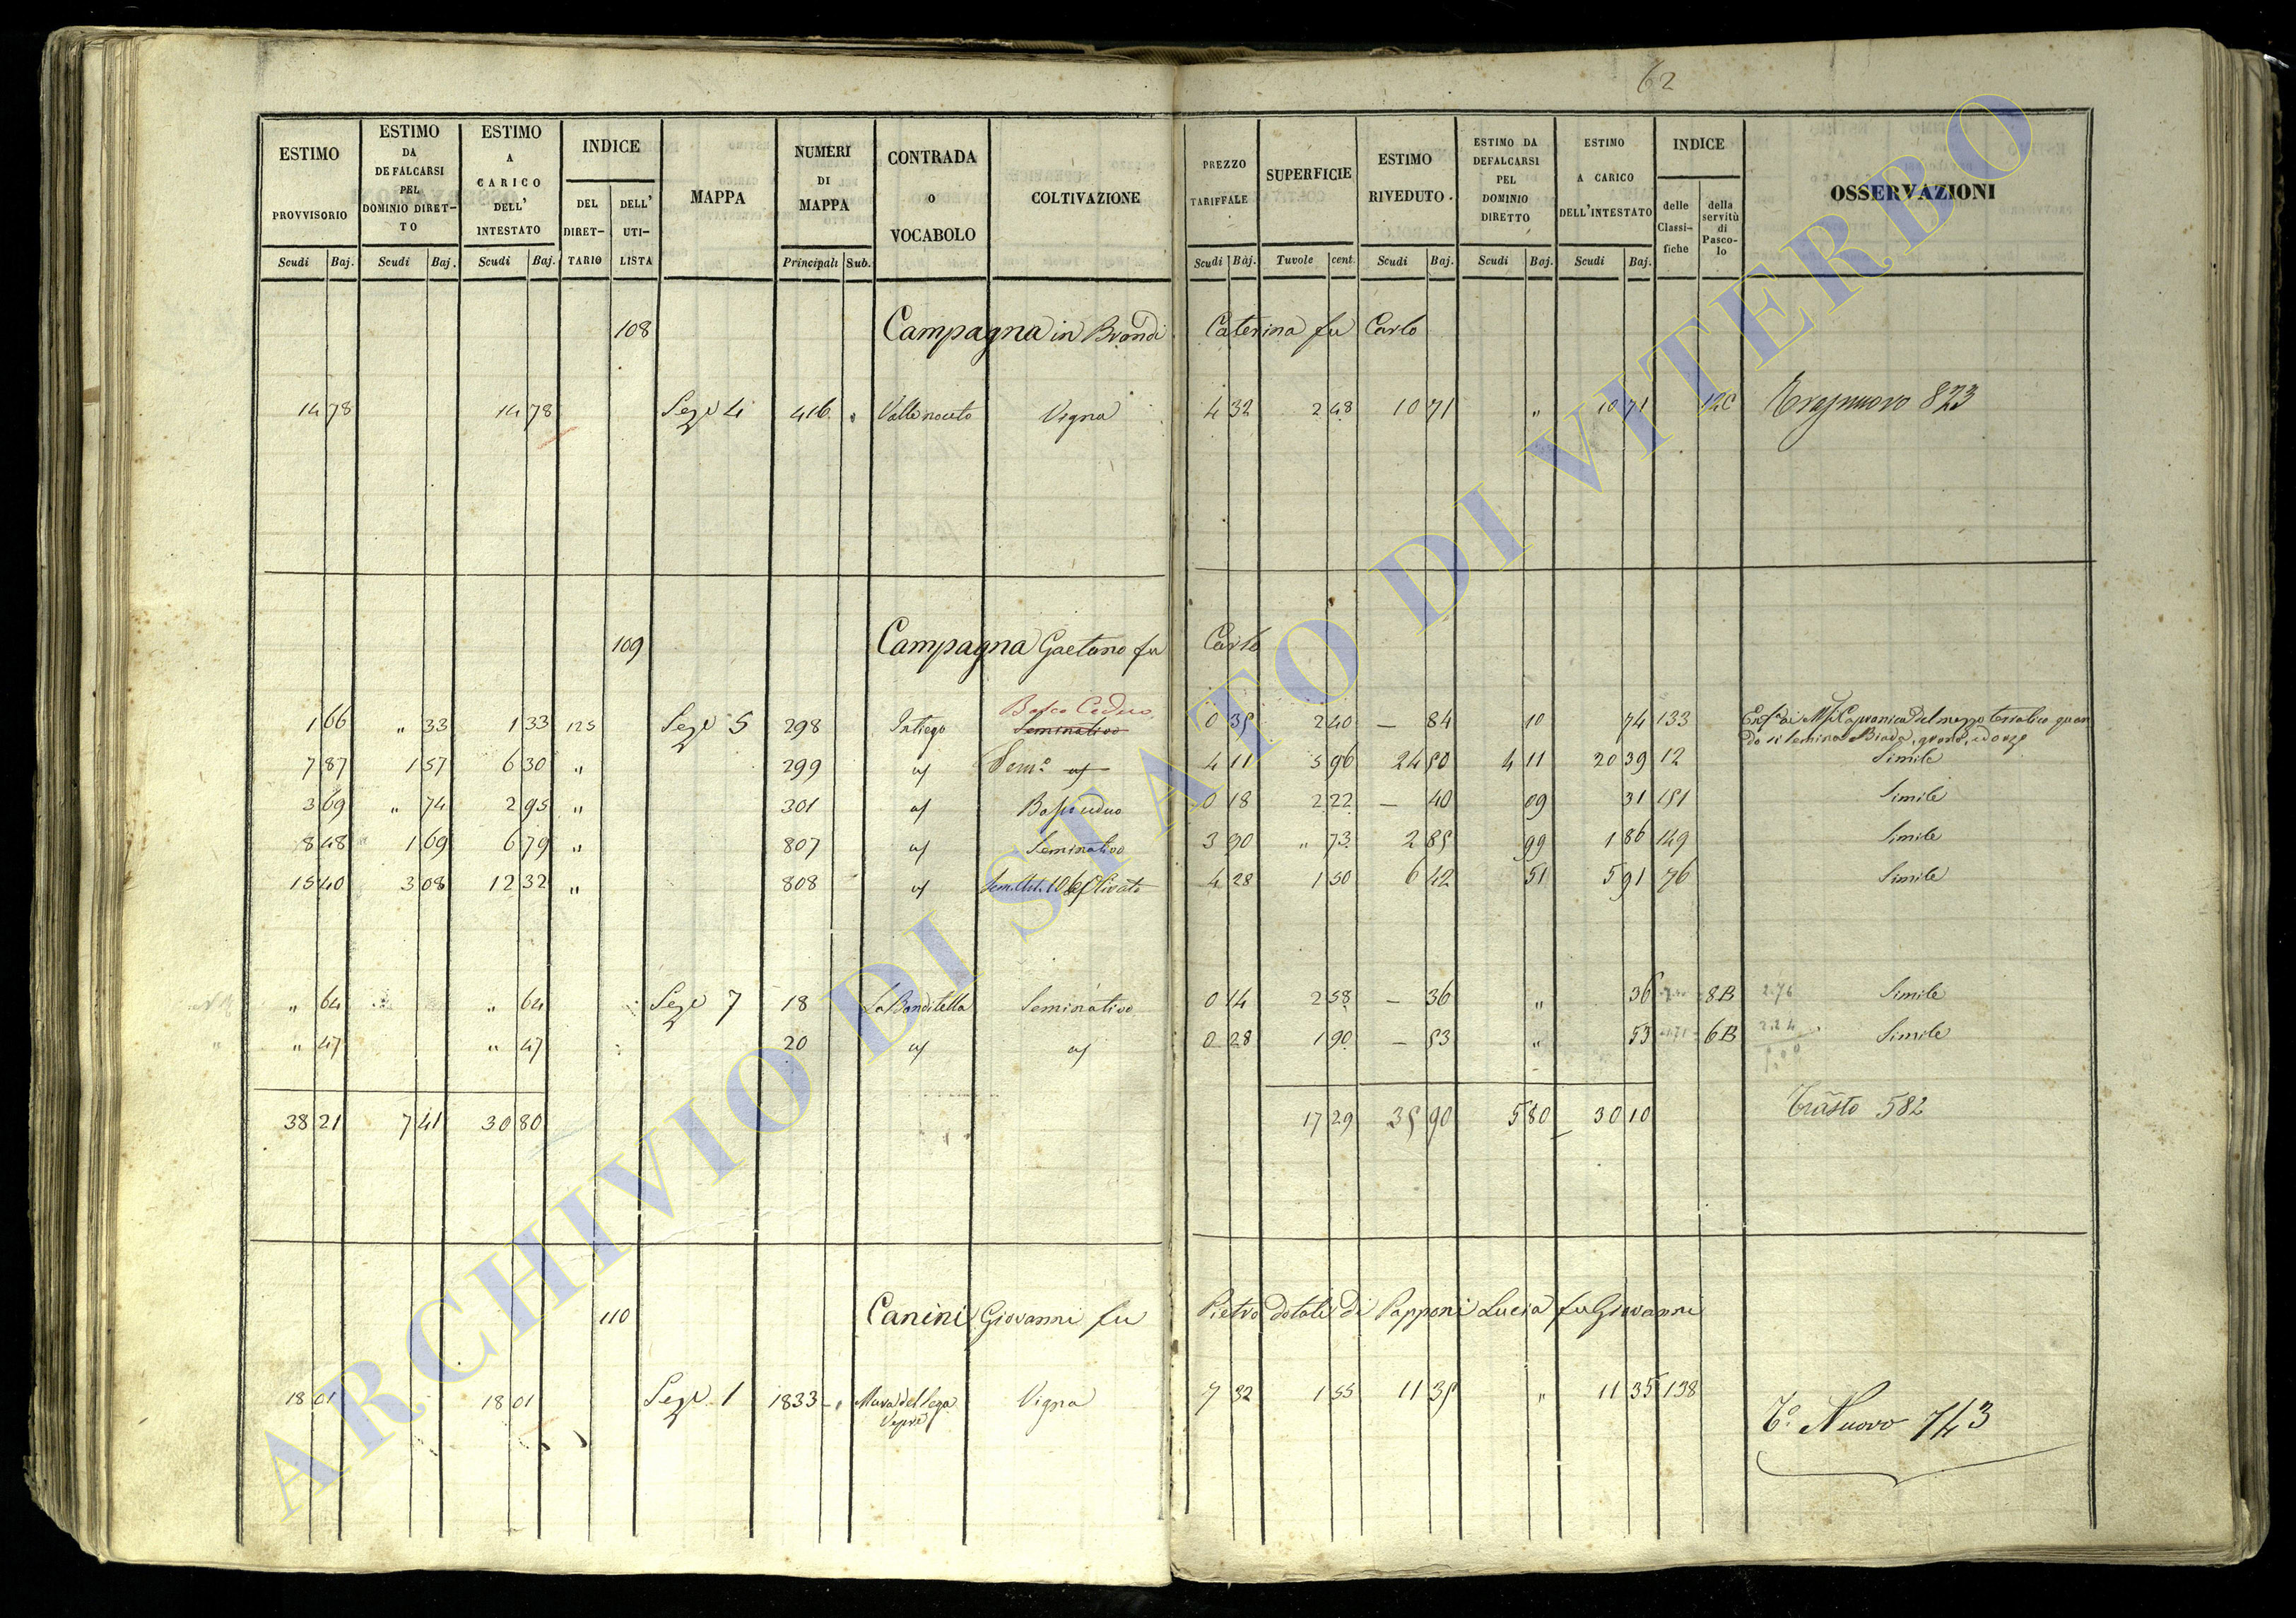 62
ESTIMO PROVVISORIO Scudi Baj.
ESTIMO DA DEFALCARSI PEL DOMINIO DIRETTO Scudi Baj.
ESTIMO A CARICO DELL' INTESTATO Scudi Baj.
INDICE DEL DIRETTARIO DELL' UTILISTA
MAPPA
NUMERI DI MAPPA Principali Sub.
CONTRADA O VOCABOLO
COLTIVAZIONE
PREZZO TARIFFALE Scudi Baj.
SUPERFICIE Tavole cent.
ESTIMO RIVEDUTO. Scudi Baj.
ESTIMO DA DEFALCARSI PEL DOMINIO DIRETTO Scudi Baj.
ESTIMO A CARICO DELL'INTESTATO Scudi Baj.
INDICE delle Classifiche della servitù di Pascolo
OSSERVAZIONI
108 Campagna in Brandi Caterina fu Carlo
14 78 14 78 Sez. 4 416 " Valle nocito Vigna 4 32 2 48 10 71 " 10 71 12C 823
109 Campagna Gaetano fu Carlo
1 66 " 33 1 33 125 Sez. 5 298 Intiego Bosco Ceduo Seminativo 0 35 2 40 — 84 10 74 133
7 87 1 57 6 30 " 299 4 11 5 96 24 50 4 11 20 39 12 Simile
3 69 " 74 2 95 " 301 Bosco ceduo 0 18 2 22 — 40 09 31 151 Simile
8 48 1 69 6 79 " 807 Seminativo 3 90 " 73 2 85 99 1 86 149 Simile
15 40 3 08 12 32 " 808 Olivato 4 28 1 50 6 42 51 5 91 76 Simile
" 64 " 64 Sez. 7 18 La Banditella Seminativo 0 14 2 58 — 36 " 36 8B 2.76 Simile
" 47 " 47 20 0 28 1 90 — 53 " 53 6B 2.24 Simile
38 21 7 41 30 80 17 29 35 90 5 80 30 10 Trasto 582
110 Canini Giovanni fu Pietro dotali di Papponi Lucia fu Giovanni
18 01 18 01 Sez. 1 1833 " Vigna 7 32 1 55 11 35 " 11 35 138
T.o Nuovo 743
ARCHIVIO DI STATO DI VITERBO